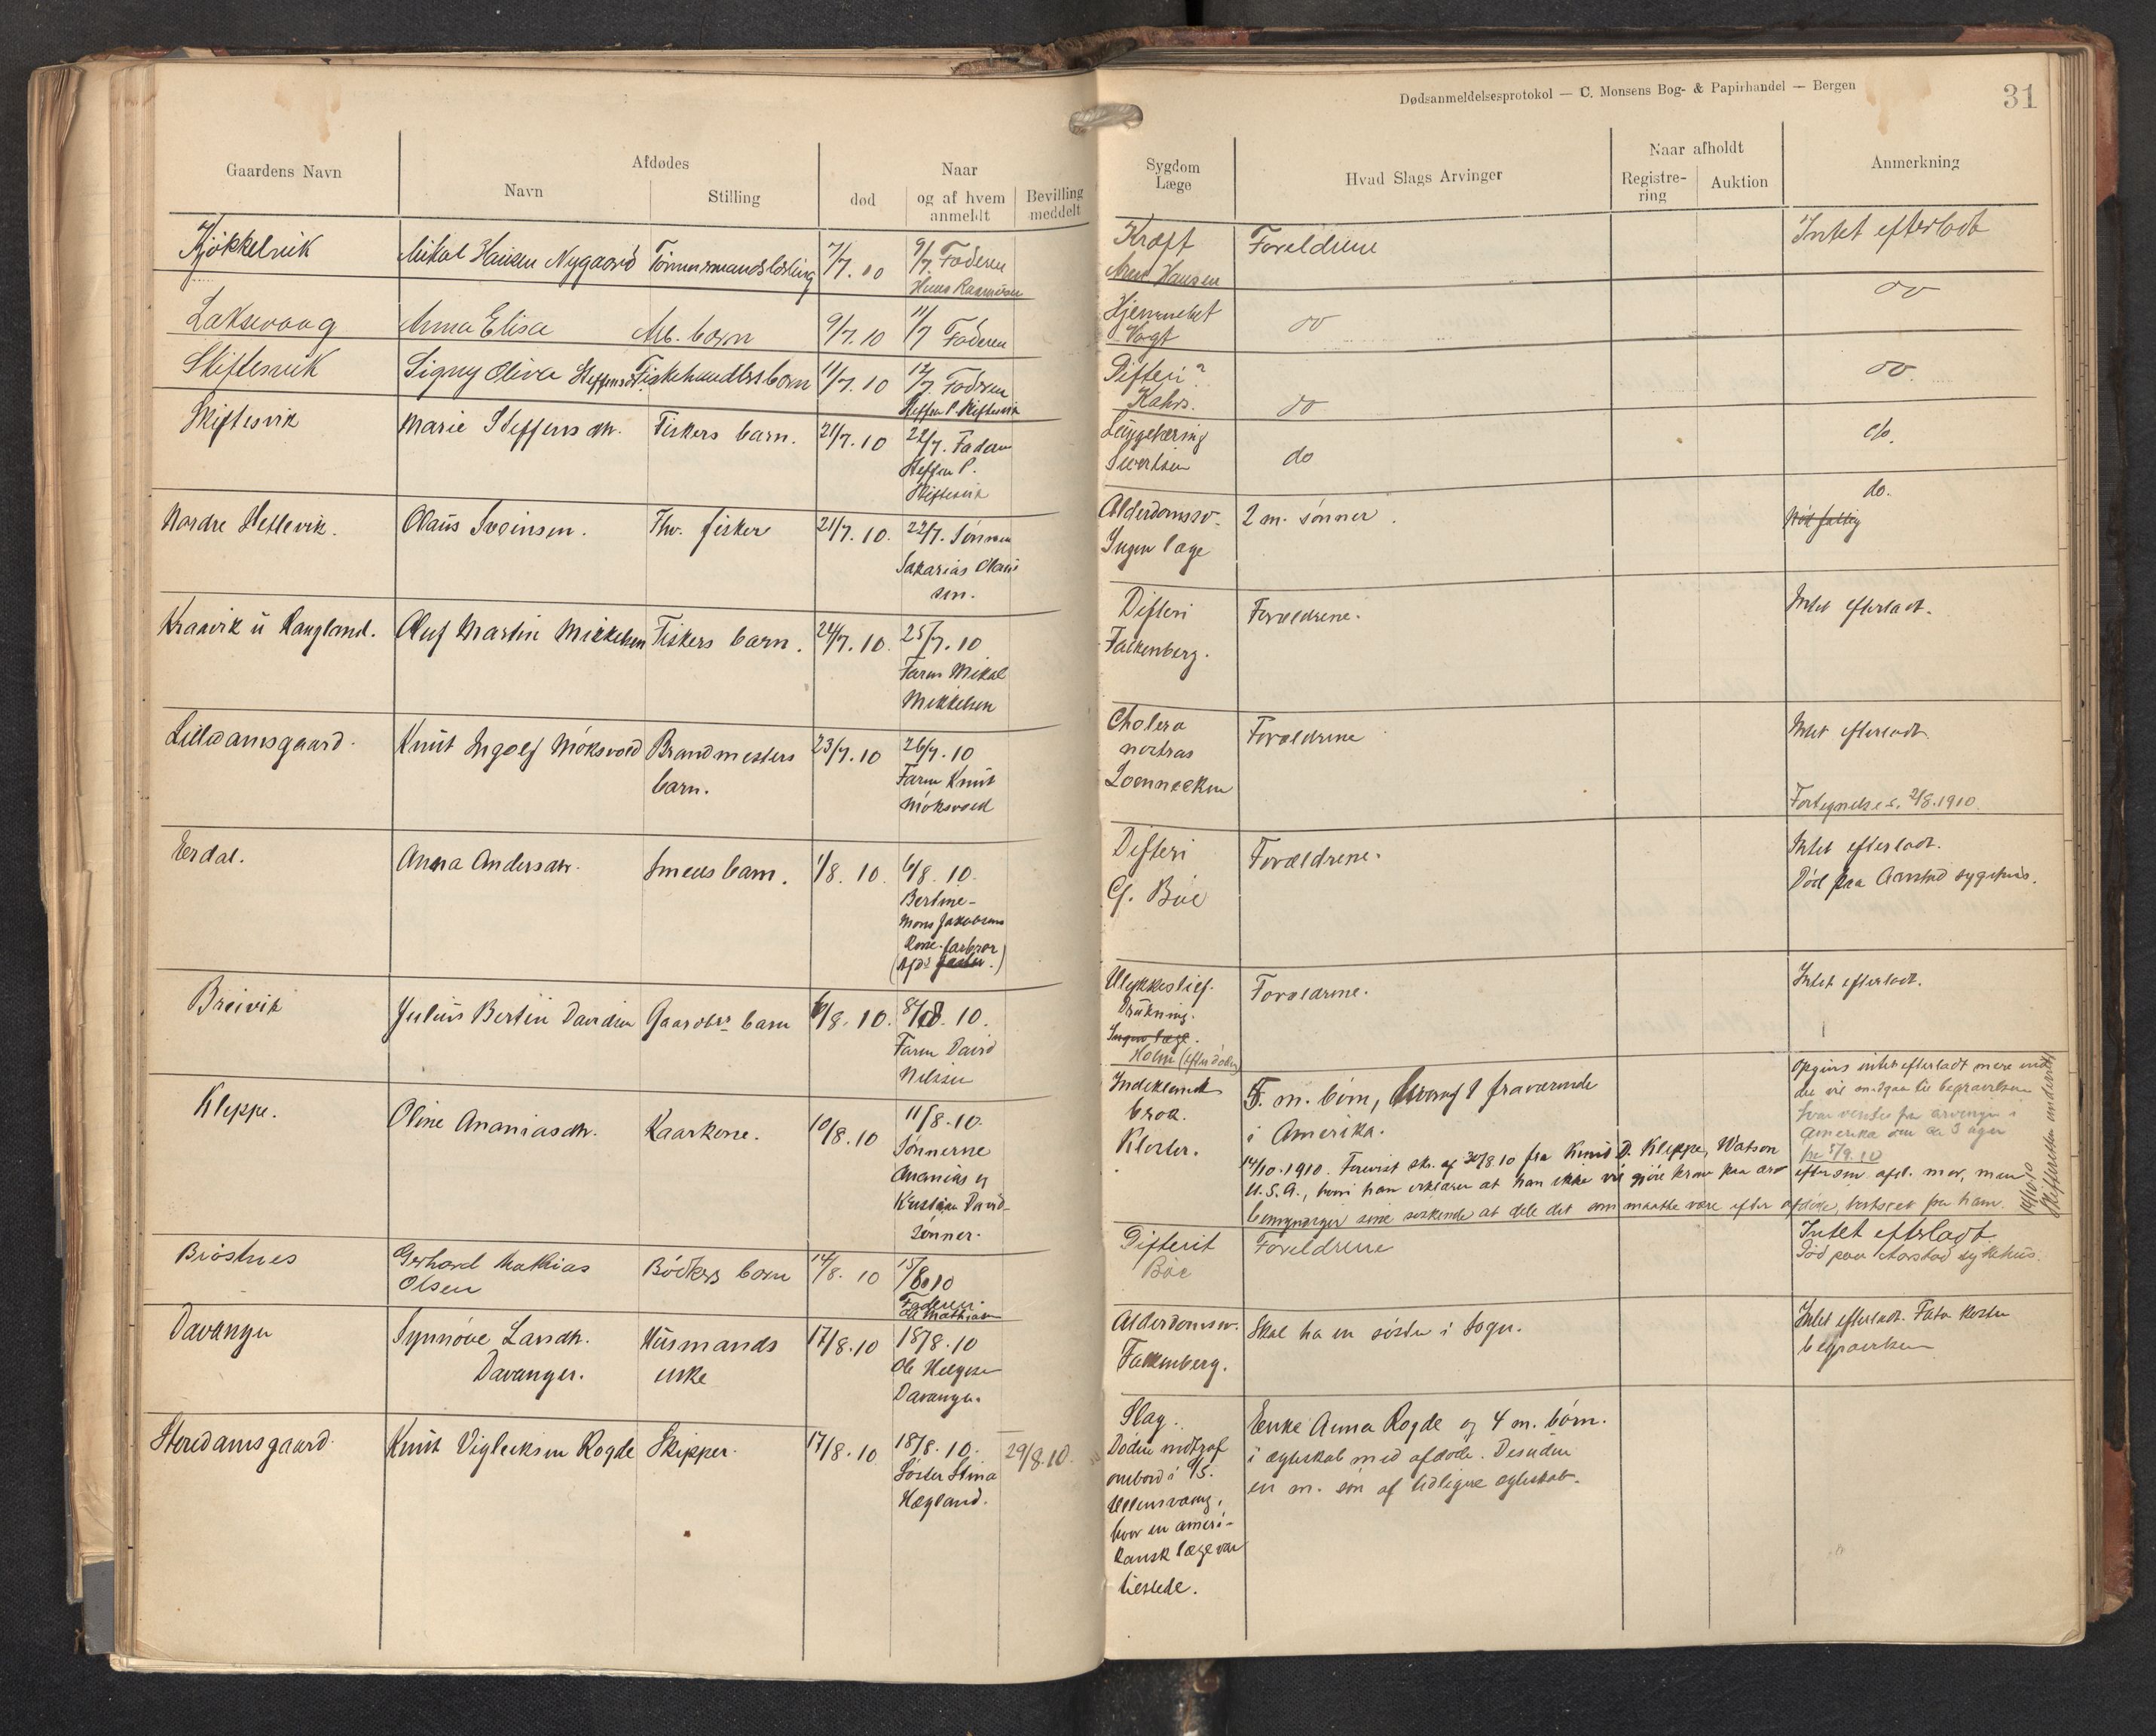 Dødsanmeldelsesprotokol — C. Monsens Bog- & Papirhandel — Bergen
31
Gaardens Navn
Afdødes
Navn
Stilling
Naar
død
og af hvem
anmeldt
Bevilling
meddelt
Sygdom
Læge
Hvad Slags Arvinger
Naar afholdt
Registre-
ring
Auktion
Anmerkning
Kjøkkelvik
Mikal Hansen Nygaard
7/7. 10
9/7. Faderen
Hans Rasmussen
Kræft
Hansen
Foreldrene
Intet efterladt
Laksevaag
Anna Elisa
Arb. barn
9/7. 10
11/7 Faderen
Hjernebet
Vogt
do
do
Skiftesvik
Signy Oliva Steffensd. Fiskehandlers barn
11/7. 10
12/7. Faderen
Steffen P. Skiftesvik
Difteri?
Kahrs.
do
do.
Skiftesvik
Marie Steffensdtr.
Fiskers barn.
21/7. 10
22/7. Faderen
Steffen P.
Skiftesvik
Lungetæring
Sivertsen
do
do.
Nordre Hetlevik.
Olaus Sveinsen.
Fhv. fisker
21/7. 10.
22/7. Sønnen
Sakarias Olaus
sen.
Alderdomssv.
Ingen læge
2 m. sønner.
do.
Kraavik u Haugland.
Oluf Martin Mikkelsen
Fiskers barn.
24/7. 10.
25/7. 10
Faren Mikal
Mikkelsen
Difteri
Falkenberg.
Forældrene.
Intet efterladt.
Lilledamsgaard.
Knut Ingolf Møksvold
Brandmesters
barn.
23/7. 10
26/7. 10
Faren Knut
Møksvold
Cholera
nostras
Loennecken
Forældrene
Intet efterladt.
Fortegnelse s. 2/8. 1910.
Erdal.
Anna Andersdtr.
Smeds barn.
1/8. 10.
6/8. 10.
Bertine-
Mons Jakobsens
Kone. farbror
Difteri
G. Bøe
Forældrene.
Intet efterladt.
Død paa Aarstad sygehus.
Breivik
Julius Bertin Davidsen
Gaardbr. barn
6/8. 10.
8/8. 10.
Faren David
Nilssen
Ulykkestilf.
Drukning.
Ingen læge.
Holm (efter døden)
Forældrene.
Intet efterladt.
Kleppe.
Oline Ananiasdtr.
Kaarkone.
10/8. 10
11/8. 10.
Sønnerne
Ananias og
Kristian David-
sønner.
Indeklemt
brok.
Kloster.
5. m. børn, hvoraf 1 fraværende
i Amerika.
14/10. 1910. Forevist skr. af 30/8 10 fra Knut D. Kleppe, Watson
U. S. A., hvori han erklærer at han ikke vil gjøre krav paa arv
efter sin afd. mor, men
bemyndiger sine søskende at dele det som maatte være efter afdøde, bortset fra ham.
Opgives intet efterladt mere end
det vil medgaa til begravelsen
Svar ventes fra arvingen i
Amerika om ca 3 uger
fra 5/9. 10
14/10. 10
Brøstnes
Gerhard Mathias
Olsen
Bødkers barn
14/8. 10
15/8. 10
Faderen.
Difterit
Bøe
Foreldrene
Intet efterladt
Død paa Aarstad sykehus.
Davanger
Synnøve Larsdtr.
Davanger.
Husmands
enke
17/8. 10
18/8. 10
Ole Helgesen
Davanger.
Alderdomssv.
Falkenberg.
Skal ha en søster i Sogn.
Intet efterladt. Fattv. koster
begravelsen
Storedamsgaard.
Knut Vigleiksen Rogde
Skipper.
17/8. 10
18/8. 10.
Søster Stina
Hægland.
29/8. 10.
Slag.
Døden indtraf
ombord i D/S.
Ullensvang,
hvor en ameri-
kansk læge var
tilstede.
Enke Anna Rogde og 4 m. børn.
i ægteskab med afdøde. Desuden
en m. søn af tidligere ægteskab.